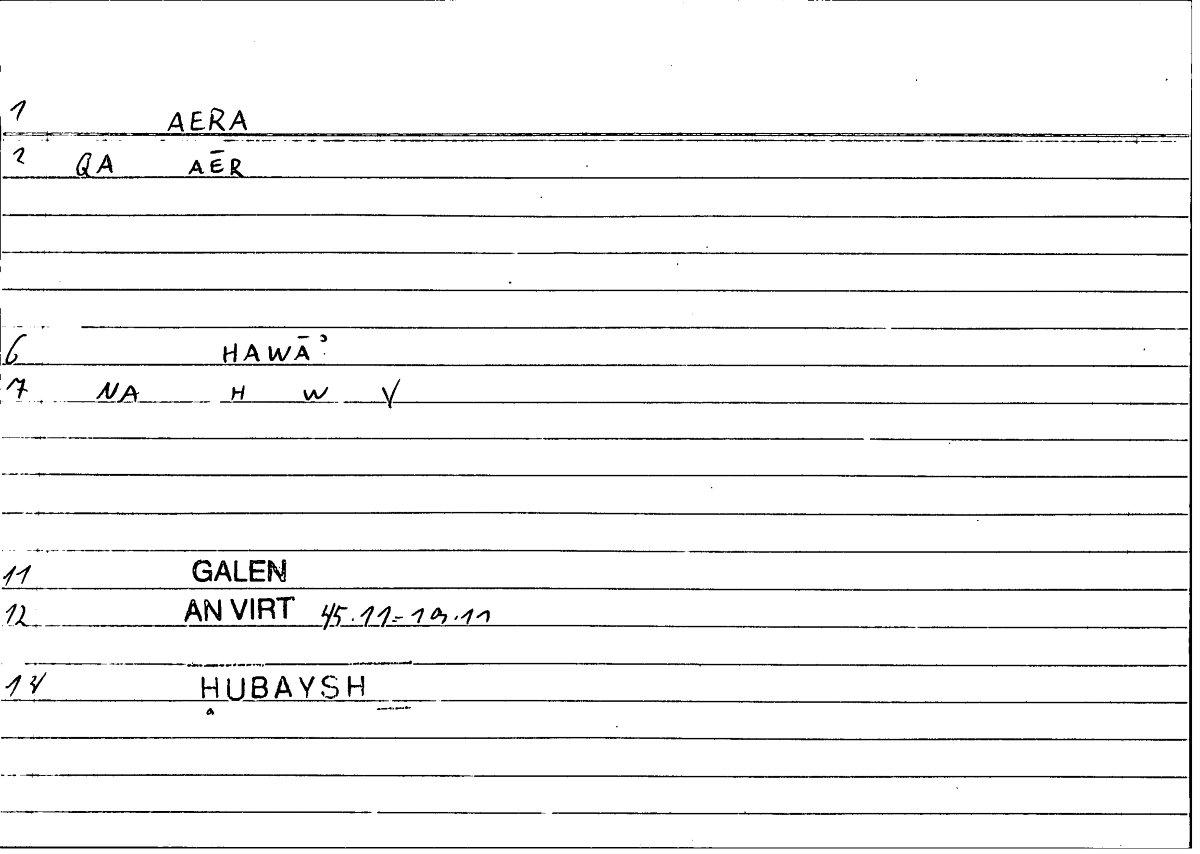 1 AERA
2 QA AĒR
6 HAWĀʾ
7 NA H W Y
11 GALEN
12 AN VIRT 45.11 = 19.11
14 HUBAYSH